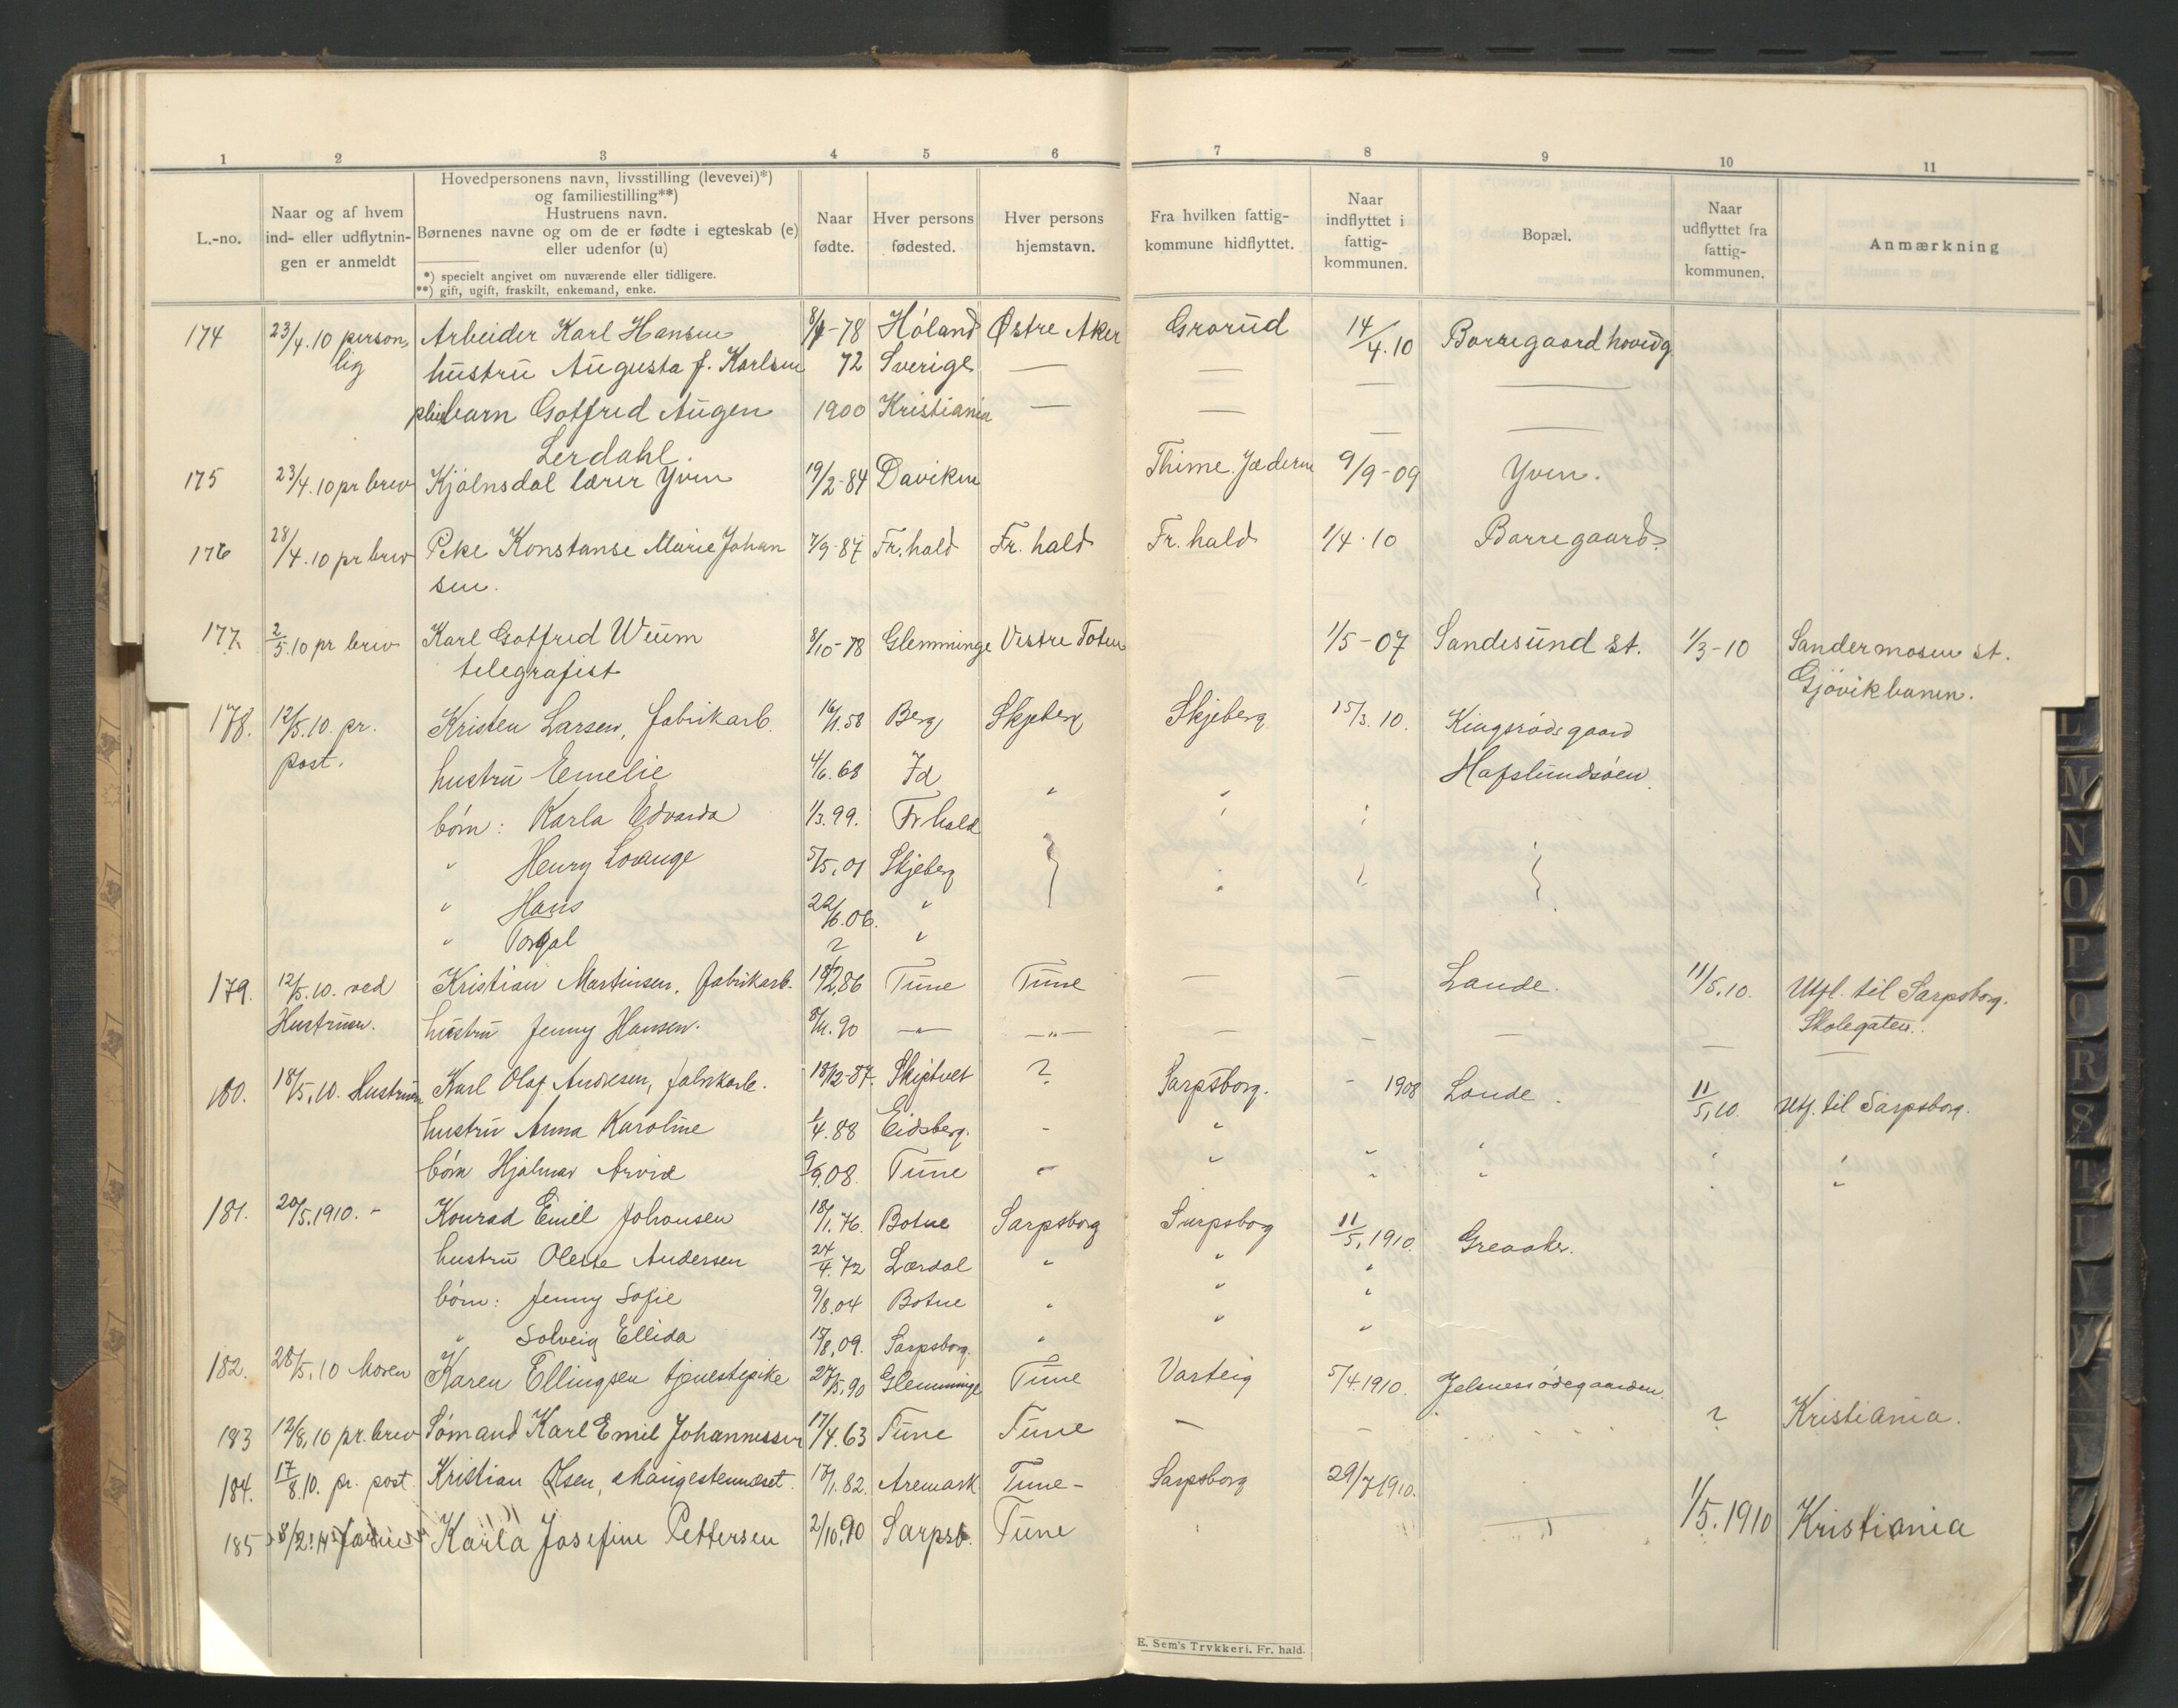 1 2 3 4 5 6 7 8 9 10 11
L.-no.
Naar og af hvem
ind- eller udflytnin-
gen er anmeldt
Hovedpersonens navn, livsstilling (levevei)*)
og familiestilling**)
Hustruens navn.
Børnenes navne og om de er fødte i egteskab (e)
eller udenfor (u)
*) specielt angivet om nuværende eller tidligere.
**) gift, ugift, fraskilt, enkemand, enke.
Naar
fødte.
Hver persons
fødested.
Hver persons
hjemstavn.
Fra hvilken fattig-
kommune hidflyttet.
Naar
indflyttet i
fattig-
kommunen.
Bopæl.
Naar
udflyttet fra
fattig-
kommunen.
Anmærkning
174 23/4.10 person Arbeider Karl Hansen -78 Høland Østre Aker Grorud 14/4.10 Borregaard hovedg
lig hustru Augusta f. Karlsen 72 Sverige — — — —
pleiebarn Gotfred Augen 1900 Kristiania — — — —
Lerdahl.
175 23/4.10 pr brev Kjølnsdal lærer Yven 19/2-84 Daviken Thime Jæderen 9/9-09 Yven.
176 28/4.10 pr brev Peke Konstanse Marie Johan 7/9-87 Fr. hald Fr. hald Fr. hald 1/4.10 Borregaard.
sen.
177. 2/5.10 pr brev Karl Gotfred Wium 8/10-78 Glemminge Vestre Toten 1/5-07 Sandesund st. 1/3-10 Sandermosen st.
telegrafist Gjøvikbanen.
178. 12/5.10. pr. Kristen Larsen, fabrikarb. 16/11.58 Berg Skjeberg Skjeberg 15/3.10. Kingsrødsgaard
post. hustru Emelie 4/6.68 Id " " Hafslundsøen.
børn: Karla Edvarda 1/3.99. Fr hald
" Henry 5/5.01 Skjeberg
" Hans 22/6.06. "
" ? "
179. 12/5.10. ved Kristian Martinsen, fabrikarb. 18/2.86 Tune Tune — — Lande. 11/5.10. Utfl. til Sarpsborg.
Hustruen. hustru Jenny Hansen. 8/11.90 —"— —"— — — — — Skolegaten.
180. 18/5.10. Hustruen Karl Olaf Andresen, fabrikarb. 18/12-87. Skiptvet ? Sarpsborg. - 1908 Lande. 11/5.10. Utf. til Sarpsborg.
hustru Anna Karoline 1/4.88 Eidsberg. - "
børn Hjalmar Arvid 9/9.08. Tune " " " " " "
181. 20/5.1910. - Konrad Emil Johansen 18/1.76. Botne Sarpsborg Sarpsborg 11/5.1910. Greaaker.
hustru Oleste Andersen 24/4.72 Lærdal " " "
børn: Jenny Sofie 9/8.04 Botne " " "
" Solveig Ellida 15/8.09. Sarpsborg. " " "
182. 28/5.10 Moren Karen Ellingsen tjenestepike 27/5.90 Glemminge Tune Varteig 5/4.1910. Jelsnesødegaarden.
183 12/8.10 pr. brev Sømand Karl Emil Johannessen 17/4.63 Tune Tune — — ? Kristiania.
184. 17/8.10. pr. post. Kristian Olsen, 17/1.82. Aremark Tune - Sarpsborg 29/7 1910.
185 Karla Josefine Pettersen 2/10.90 Sarpsb. Tune —"— 1/5.1910 Kristiania
E. Sem's Trykkeri. Fr. hald.
L
M
N
O
P
Q
R
S
T